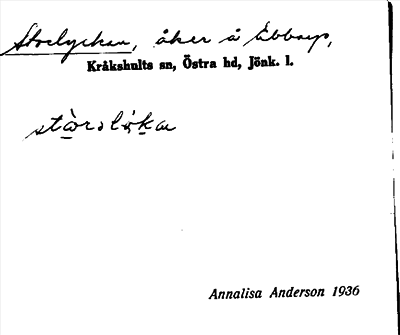 Storlyckan, åker å Ebbarp,
Kråkshults sn, Östra hd, Jönk. l.
Annalisa Anderson 1936